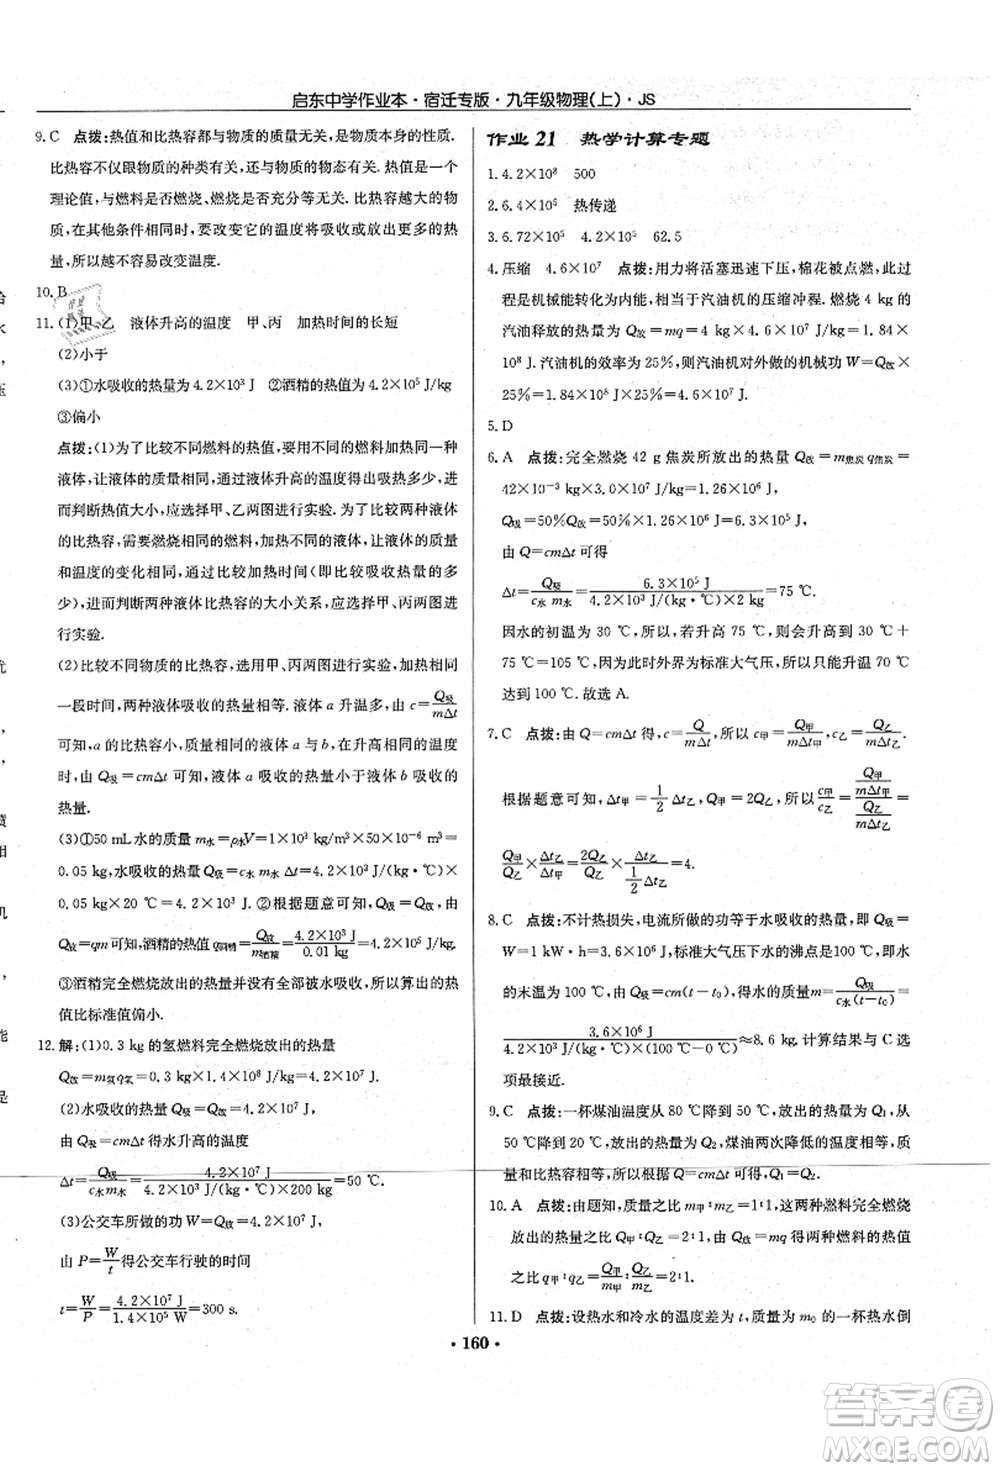 启东中学作业本·宿迁专版·九年级物理(上)·JS
9. C 点拨:热值和比热容都与物质的质量无关,是物质本身的性质.
比热容不仅跟物质的种类有关,还与物质的物态有关.热值是一个
理论值,与燃料是否燃烧、燃烧是否充分等无关.比热容越大的物
质,在其他条件相同时,要改变它的温度将吸收或放出更多的热
量,所以越不容易改变温度.
10. B
11. (1)甲、乙 液体升高的温度 甲、丙 加热时间的长短
(2)小于
(3)①水吸收的热量为 4.2×10³ J ②酒精的热值为 4.2×10⁵ J/kg
③偏小
点拨:(1)为了比较不同燃料的热值,需要用不同的燃料加热同一种
液体,让液体的质量相同,通过液体升高的温度得出吸热多少,进
而判断热值大小,应选择甲、乙两图进行实验.为了比较两种液体
的比热容,需要燃烧相同的燃料,加热不同的液体,让液体的质量
和温度的变化相同,通过比较加热时间(即比较吸收热量)的多
少,进而判断两种液体比热容的大小关系,应选择甲、丙两图进
行实验.
(2)比较不同物质的比热容,选用甲、丙两图进行实验,加热相同
一段时间,两种液体吸收的热量相等.液体 a 升温大,由 c=Q吸/(mΔt)
可知,a 的比热容小,质量相同的液体 a 与液体 b,在升高相同温度
时,由 Q吸=cmΔt 可知,液体 a 吸收的热量小于液体 b 吸收的
热量.
(3)①50 mL 水的质量 m水=ρ水V=1×10³ kg/m³×50×10⁻⁶ m³=
0.05 kg,水吸收的热量 Q吸=c水m水Δt=4.2×10³ J/(kg·℃)×
0.05 kg×20 ℃=4.2×10³ J. ②根据题意可知,Q放=Q吸,由
Q放=qm 可知,酒精的热值 q酒精=Q放/m酒精=4.2×10³ J/0.01 kg=4.2×10⁵ J/kg.
③酒精完全燃烧放出的热量并没有全部被水吸收,所以算出的热
值比标准值偏小.
12. 解:(1)0.3 kg 的氢燃料完全燃烧放出的热量
Q放=m氢q氢=0.3 kg×1.4×10⁸ J/kg=4.2×10⁷ J.
(2)水吸收的热量 Q吸=Q放=4.2×10⁷ J,
由 Q吸=cmΔt 得水升高的温度
Δt=Q吸/(c水m水)=4.2×10⁷ J/(4.2×10³ J/(kg·℃)×200 kg)=50 ℃.
(3)公交车所做的功 W=Q放=4.2×10⁷ J,
由 P=W/t 得公交车行驶的时间
t=W/P=4.2×10⁷ J/(1.4×10⁵ W)=300 s.
作业 21 热学计算专题
1. 4.2×10⁸ 500
2. 6.4×10⁵ 热传递
3. 6.72×10⁵ 4.2×10⁵ 62.5
4. 压缩 4.6×10⁷ 点拨:用力将活塞迅速下压,棉花被点燃,此过
程是机械能转化为内能,相当于汽油机的压缩冲程.燃烧 4 kg 的
汽油释放的热量为 Q放=mq=4 kg×4.6×10⁷ J/kg=1.84×
10⁸ J.汽油机的效率为 25%,则汽油机对外做的机械功 W=Q放×
25%=1.84×10⁸ J×25%=4.6×10⁷ J.
5. D
6. A 点拨:完全燃烧 42 g 焦炭放出的热量 Q放=m焦炭q焦炭=
42×10⁻³ kg×3×10⁷ J/kg=1.26×10⁶ J,
Q吸=50%Q放=50%×1.26×10⁶ J=6.3×10⁵ J,
由 Q=cmΔt 可得
Δt=Q吸/(c水m水)=6.3×10⁵ J/(4.2×10³ J/(kg·℃)×2 kg)=75 ℃.
因水的初温为 30 ℃,所以,若升高 75 ℃,则会出现 30 ℃+
75 ℃=105 ℃,而此时外界为标准大气压,所以只能升温 70 ℃
达到 100 ℃.故选 A.
7. C 点拨:由 Q=cmΔt 得,c=Q/(mΔt),则 c甲=Q甲/(mΔt甲),c乙=Q乙/(mΔt乙).
根据题意可知,Δt甲=1/2 Δt乙,Q甲=2Q乙,所以 c甲/c乙=(Q甲/(mΔt甲))/(Q乙/(mΔt乙))=
Q甲/Q乙×Δt乙/Δt甲=2Q乙/Q乙×Δt乙/(1/2 Δt乙)=4.
8. C 点拨:不计热损失,电流所做的功等于水吸收的热量,即 Q吸=
W=1 kW·h=3.6×10⁶ J,标准大气压下水的沸点是 100 ℃,即水
的末温为 100 ℃,由 Q吸=cm(t−t₀),得水的质量 m=Q吸/(c水(t−t₀))=
3.6×10⁶ J/(4.2×10³ J/(kg·℃)×(100 ℃−0 ℃))≈8.6 kg.计算结果与 C 选
项最接近.
9. C 点拨:一杯煤油温度从 80 ℃降到 50 ℃,放出的热量为 Q₁,从
50 ℃降到 20 ℃,放出的热量为 Q₂,煤油两次降低的温度相等,质
量、比热容相等,所以根据 Q=cmΔt 可得 Q₁=Q₂.
10. A 点拨:由题知,质量之比 m甲∶m乙=1∶1,这两种燃料完全燃烧
放出的热量之比 Q甲∶Q乙=2∶1,由 Q=mq 得两种燃料的热值
之比 q甲∶q乙=Q甲/m甲∶Q乙/m乙=2∶1.
11. D 点拨:设热水和冷水的温度差为 t,质量为 m₀ 的一杯热水倒
·160·
答案圈
MXQE.COM